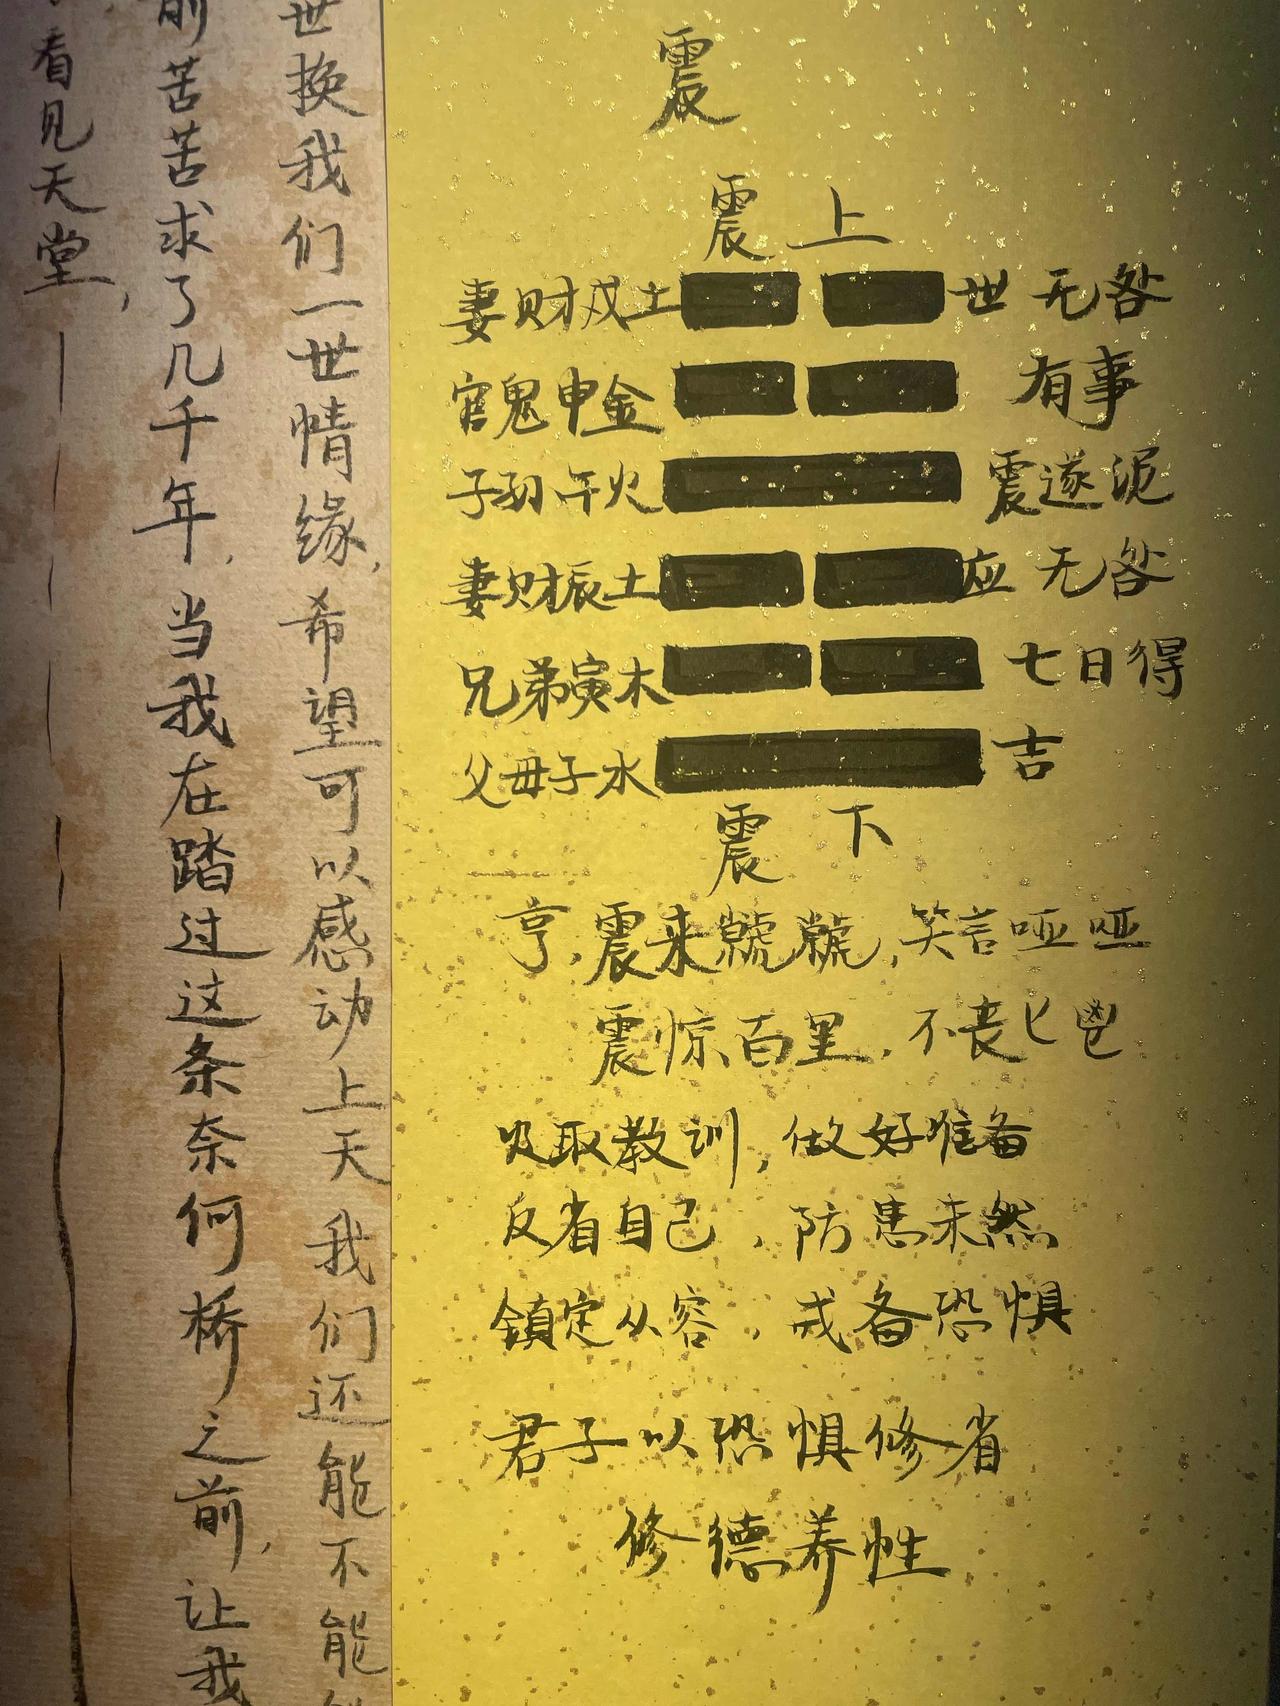 震
震上
妻财戌土 世 无咎
官鬼申金 有事
子孙午火 震遂泥
妻财辰土 应 无咎
兄弟寅木 七日得
父母子水 吉
震下
亨,震来虩虩,笑言哑哑
震惊百里,不丧匕鬯
吸取教训,做好准备
反省自己,防患未然
鎮定从容,戒备恐惧
君子以恐惧修省
修德养性
世换我们一世情缘,希望可以感动上天我们还能不能
前苦苦求了几千年,当我在踏过这条奈何桥之前,让我
看见天堂,